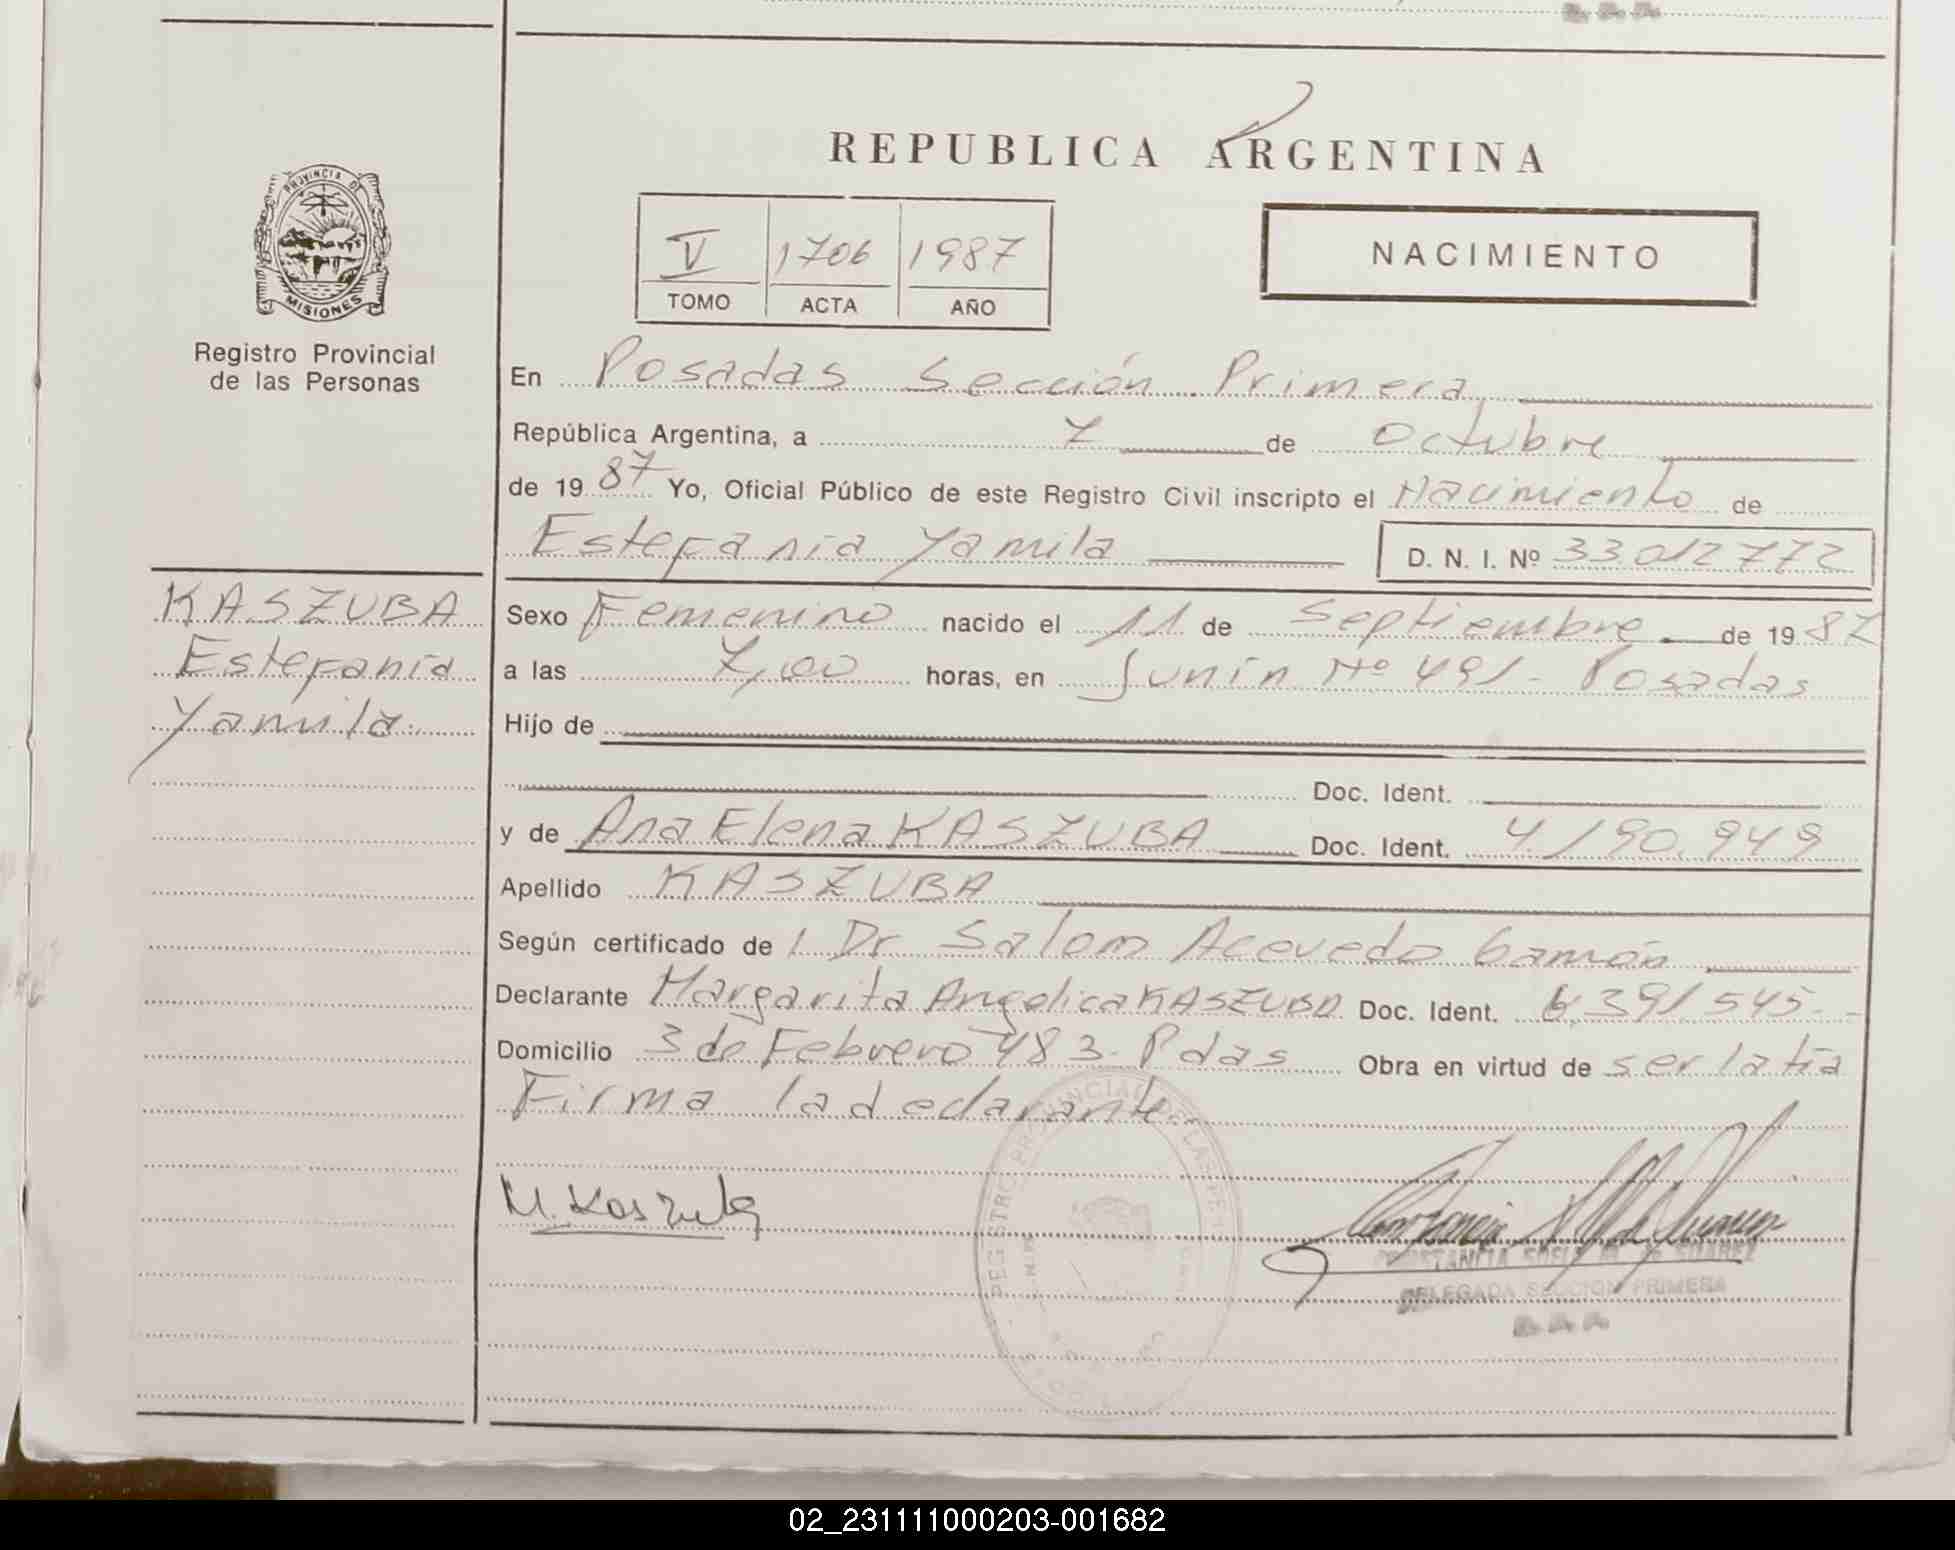 REPUBLICA ARGENTINA
PROVINCIA DE
MISIONES
Registro Provincial
de las Personas
V 1706 1987
TOMO ACTA AÑO
NACIMIENTO
En Posadas Sección Primera
República Argentina, a 7 de Octubre
de 1987 Yo, Oficial Público de este Registro Civil inscripto el Nacimiento de
Estefanía Yamila D. N. I. Nº 33012772
KASZUBA
Estefanía
Yamila
Sexo Femenino nacido el 11 de Septiembre de 1987
a las 7,00 horas, en Junín Nº 491 - Posadas
Hijo de
Doc. Ident.
y de Ana Elena KASZUBA Doc. Ident. 4.190.949
Apellido KASZUBA
Según certificado de Dr Salom Acevedo
Declarante Margarita Angelica KASZUBA Doc. Ident. 6.391545-
Domicilio 3 de Febrero 483 - Pdas Obra en virtud de ser la tía
Firma la declarante
M. Kaszuba
REGISTRO PROVINCIAL DE LAS PER
CONSTANCIA SOFIA M. de SUAREZ
DELEGADA SECCION PRIMERA
02_231111000203-001682